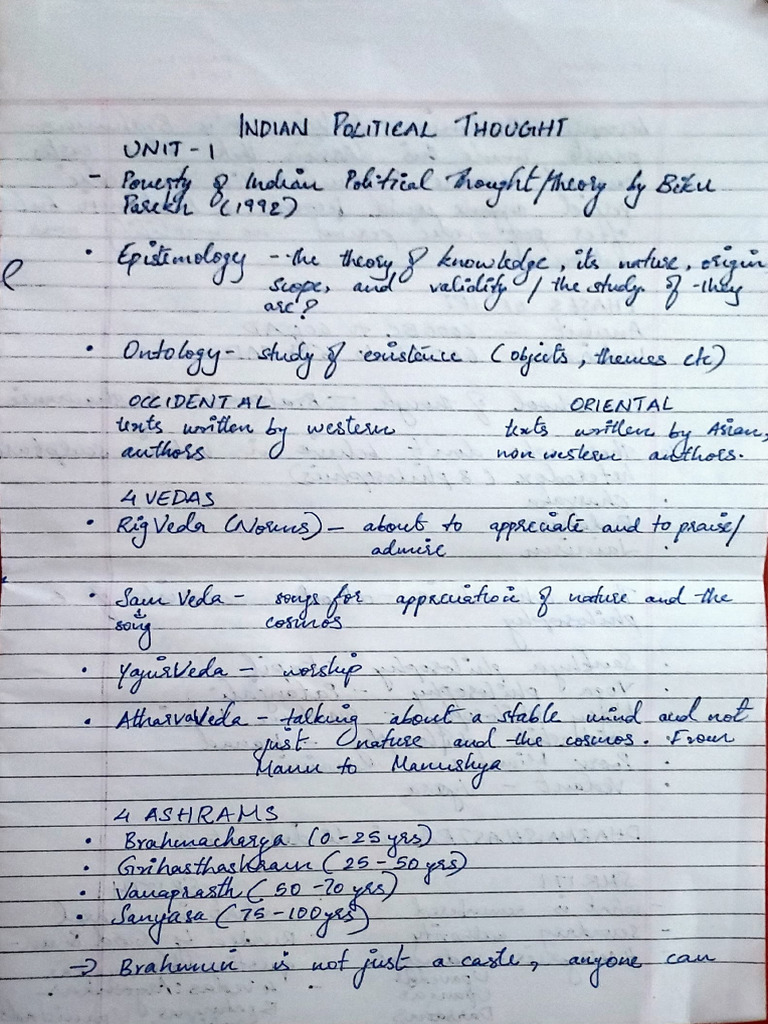 INDIAN POLITICAL THOUGHT
UNIT - 1
- Poverty of Indian Political Thought/theory by Biku
Parekh (1992)
• Epistemology - the theory of knowledge, its nature, origin
scope, and validity / the study of they
are?
• Ontology - study of existence (objects, themes etc)
OCCIDENTAL ORIENTAL
texts written by western texts written by Asian,
authors non western authors.
4 VEDAS
• Rig Veda (Norms) - about to appreciate and to praise/
admire
• Sam Veda - songs for appreciation of nature and the
song cosmos
• YajurVeda - worship
• AtharvaVeda - talking about a stable mind and not
just nature and the cosmos. From
Manu to Manushya
4 ASHRAMS
• Brahmacharya (0-25 yrs)
• Grihasthashram (25-50 yrs)
• Vanaprasth (50-70 yrs)
• Sanyasa (75-100yrs)
→ Brahmin is not just a caste, anyone can